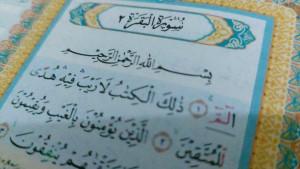 سُوْرَةُ الْبَقَرَةِ ٢
بِسْمِ اللّٰهِ الرَّحْمٰنِ الرَّحِيْمِ
الۤمّۤ ۚ ١ ذٰلِكَ الْكِتٰبُ لَا رَيْبَ فِيْهِ هُدًى
لِّلْمُتَّقِيْنَ ٢ الَّذِيْنَ يُؤْمِنُوْنَ بِالْغَيْبِ وَيُقِيْمُوْنَ
يُنْفِقُوْنَ